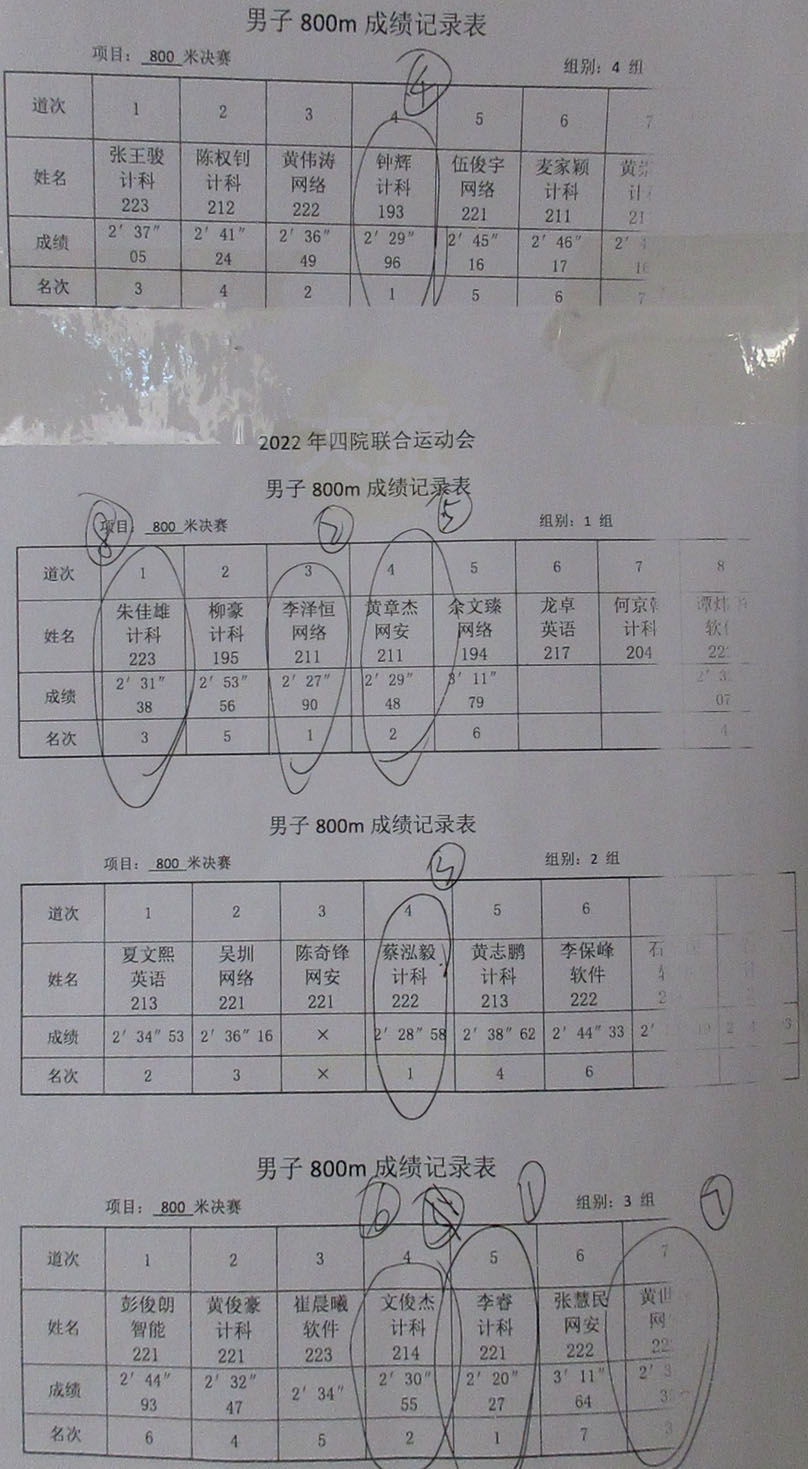 男子 800m 成绩记录表
项目： 800 米决赛 组别：4 组
④
道次 1 2 3 4 5 6 7
姓名 张王骏 计科 223 陈权钊 计科 212 黄伟涛 网络 222 钟辉 计科 193 伍俊宇 网络 221 麦家颖 计科 211 黄
成绩 2′37″05 2′41″24 2′36″49 2′29″96 2′45″16 2′46″17
名次 3 4 2 1 5 6 7
2022 年四院联合运动会
男子 800m 成绩记录表
⑧ ② ⑤
项目： 800 米决赛 组别：1 组
道次 1 2 3 4 5 6 7 8
姓名 朱佳雄 计科 223 柳豪 计科 195 李泽恒 网络 211 黄章杰 网安 211 余文臻 网络 194 龙卓 英语 217 何京 计科 204
成绩 2′31″38 2′53″56 2′27″90 2′29″48 3′11″79 07
名次 3 5 1 2 6 4
男子 800m 成绩记录表
项目： 800 米决赛 组别：2 组
③
道次 1 2 3 4 5 6
姓名 夏文熙 英语 213 吴圳 网络 221 陈奇锋 网安 221 蔡泓毅 计科 222 黄志鹏 计科 213 李保峰 软件 222 石
成绩 2′34″53 2′36″16 × 2′28″58 2′38″62 2′44″33 2′
名次 2 3 × 1 4 6
男子 800m 成绩记录表
项目： 800 米决赛 组别：3 组
⑥ ① ⑦
道次 1 2 3 4 5 6 7
姓名 彭俊朗 智能 221 黄俊豪 计科 221 崔晨曦 软件 223 文俊杰 计科 214 李睿 计科 221 张慧民 网安 222 黄 网 22
成绩 2′44″93 2′32″47 2′34″ 2′30″55 2′20″27 3′11″64 2′3
名次 6 4 5 2 1 7 3